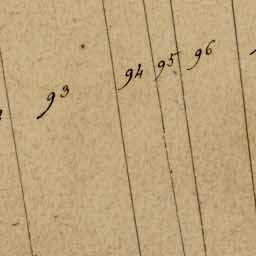 93
94
95
96